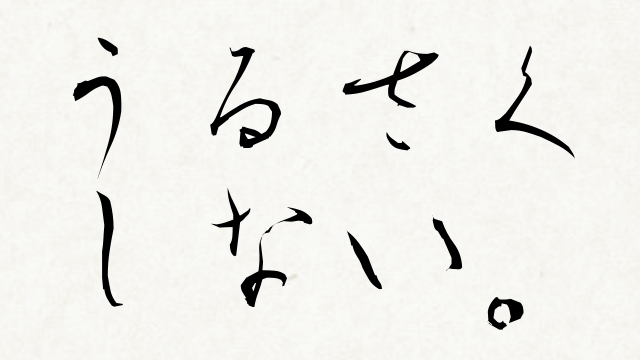 うるさく
しない。